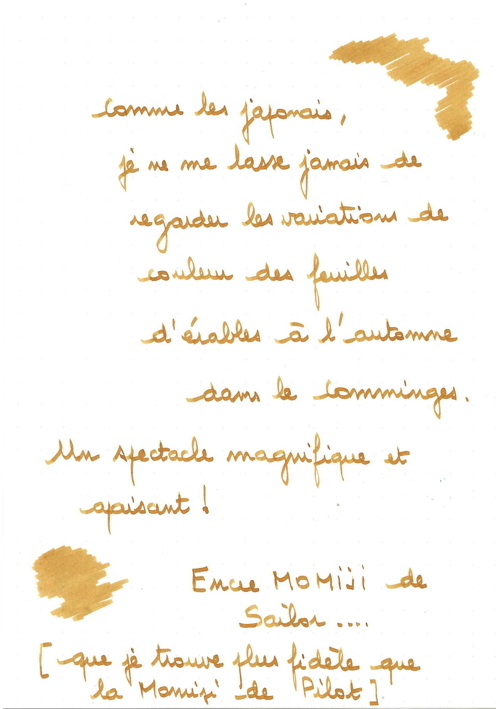 comme les japonais,
je ne me lasse jamais de
regarder les variations de
couleur des feuilles
d'érables à l'automne
dans le Comminges.
Un spectacle magnifique et
apaisant !
Encre MOMiji de
Sailor ....
[ que je trouve plus fidèle que
la Momiji de Pilot ].